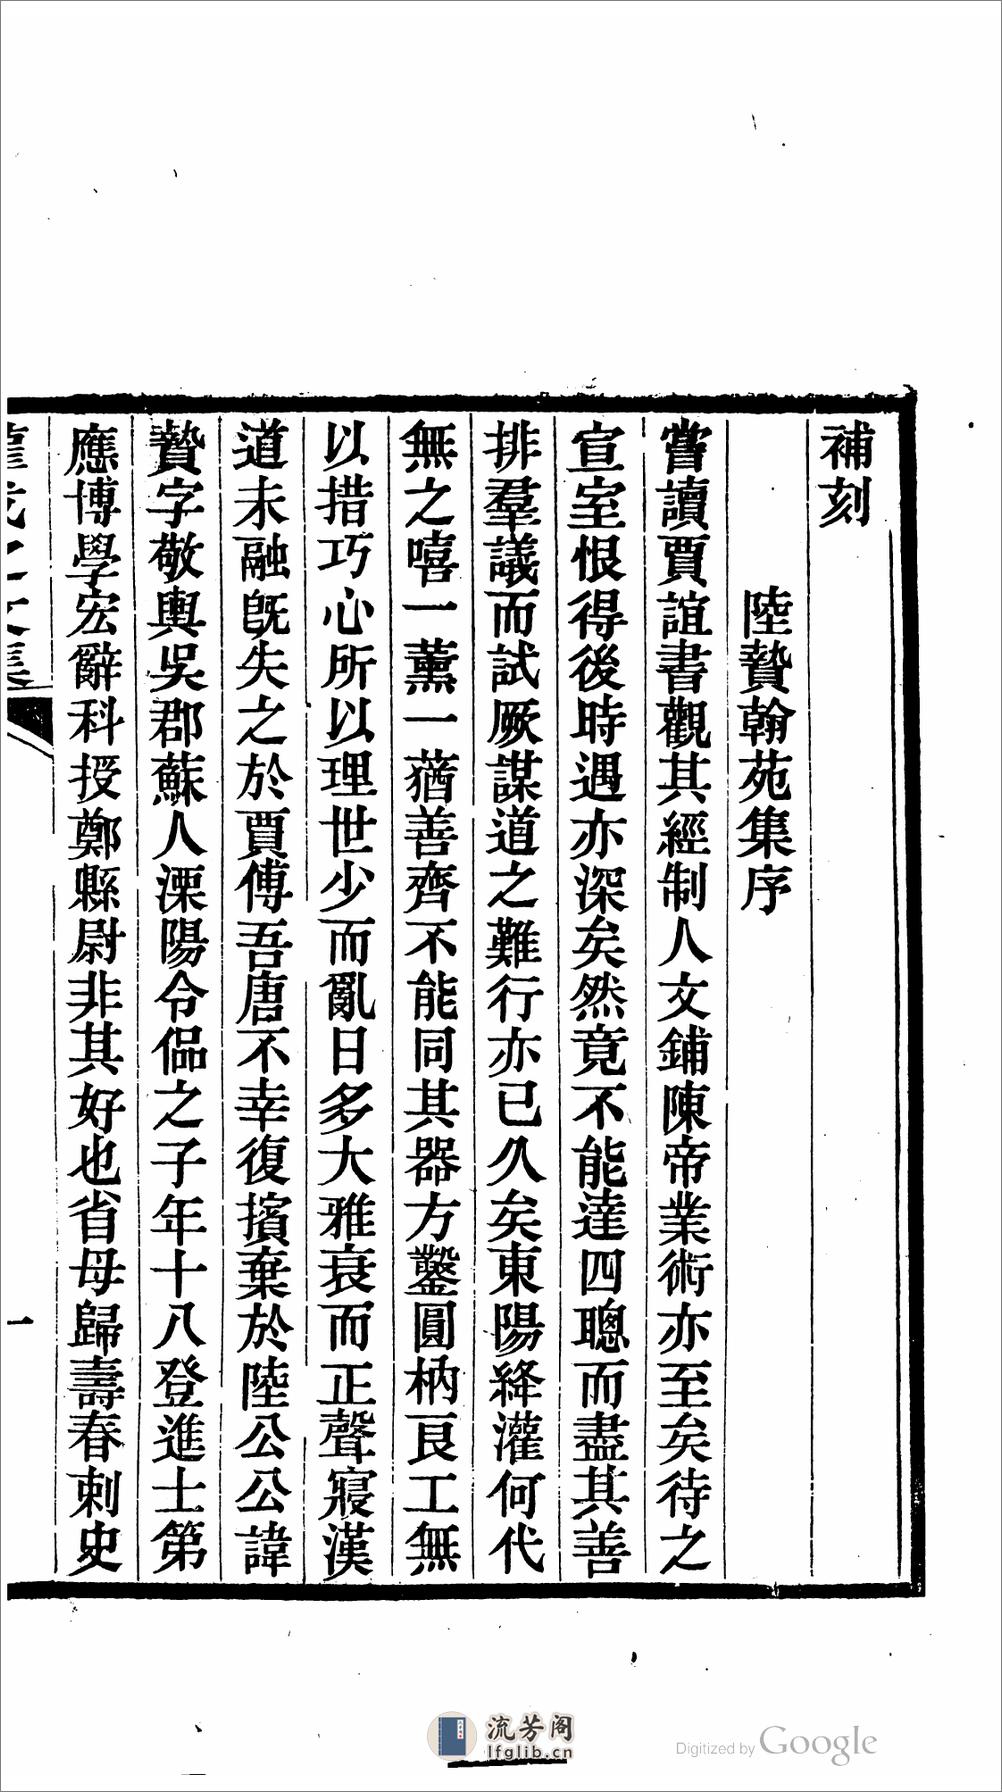 補刻
陸贄翰苑集序
嘗讀賈誼書觀其經制人文鋪陳帝業術亦至矣待之
宣室恨得後時遇亦深矣然竟不能達四聰而盡其善
排羣議而試厥謀道之難行亦已久矣東陽絳灌何代
無之嘻一薰一蕕善齊不能同其器方鑿圓枘良工無
以措巧心所以理世少而亂日多大雅衰而正聲寢漢
道未融旣失之於賈傅吾唐不幸復擯棄於陸公公諱
贄字敬輿吳郡蘇人溧陽令偘之子年十八登進士第
應博學宏辭科授鄭縣尉非其好也省母歸壽春刺史
一
流芳阁
lfglib.cn
Digitized by Google